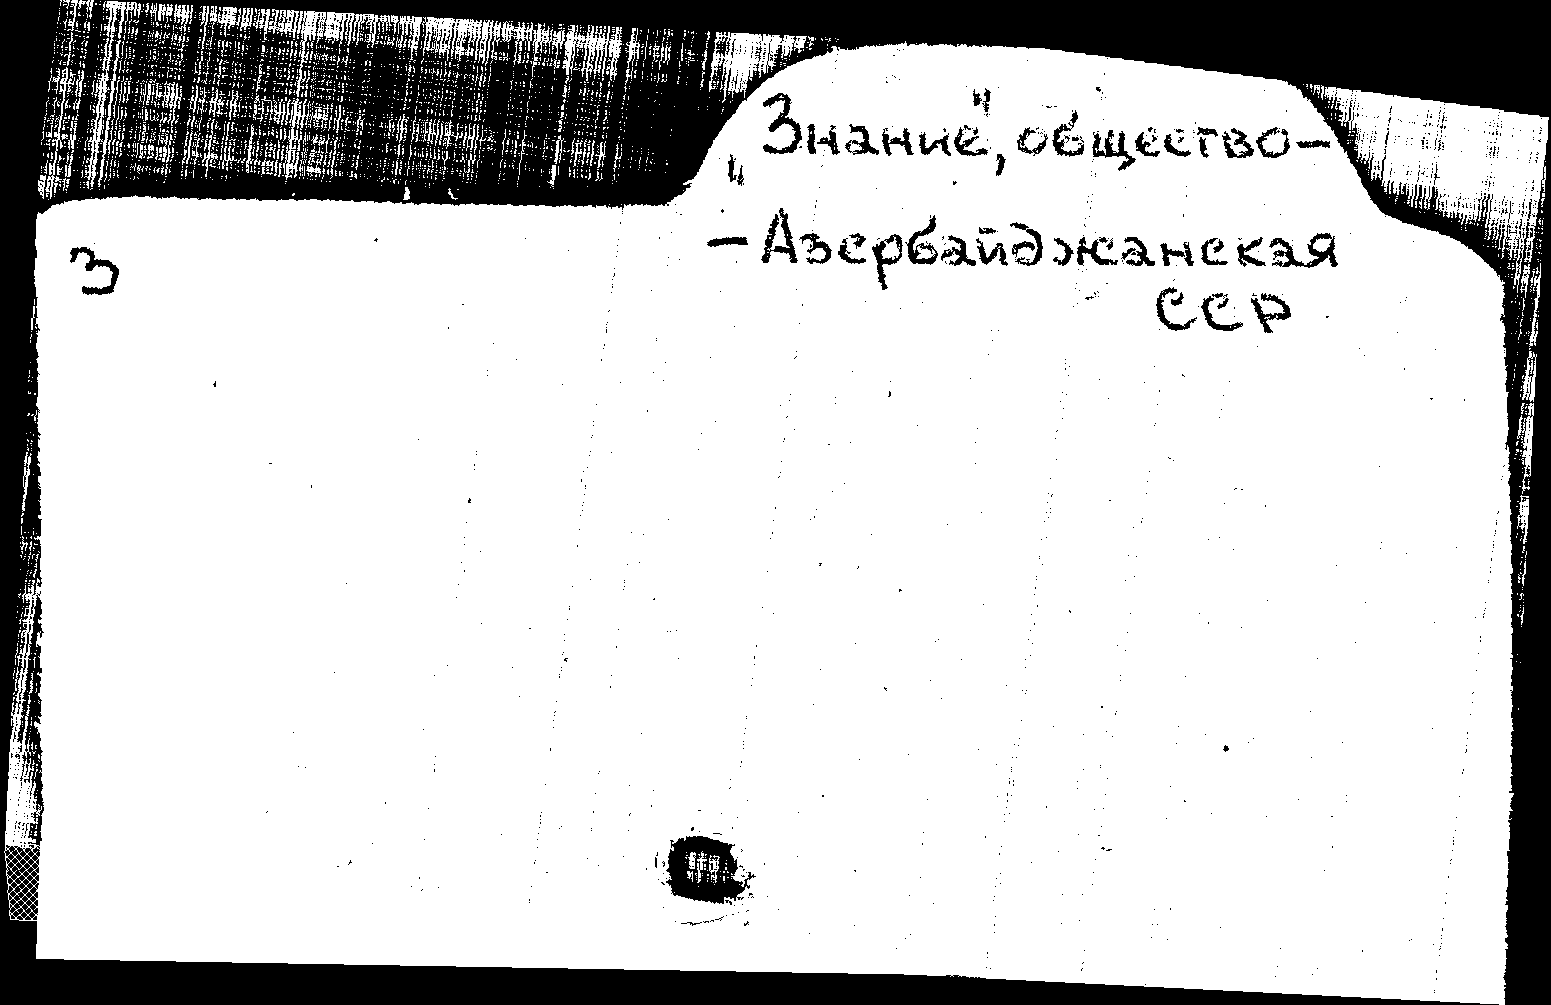 „Знание", общество–
– Азербайджанская
ССР
З